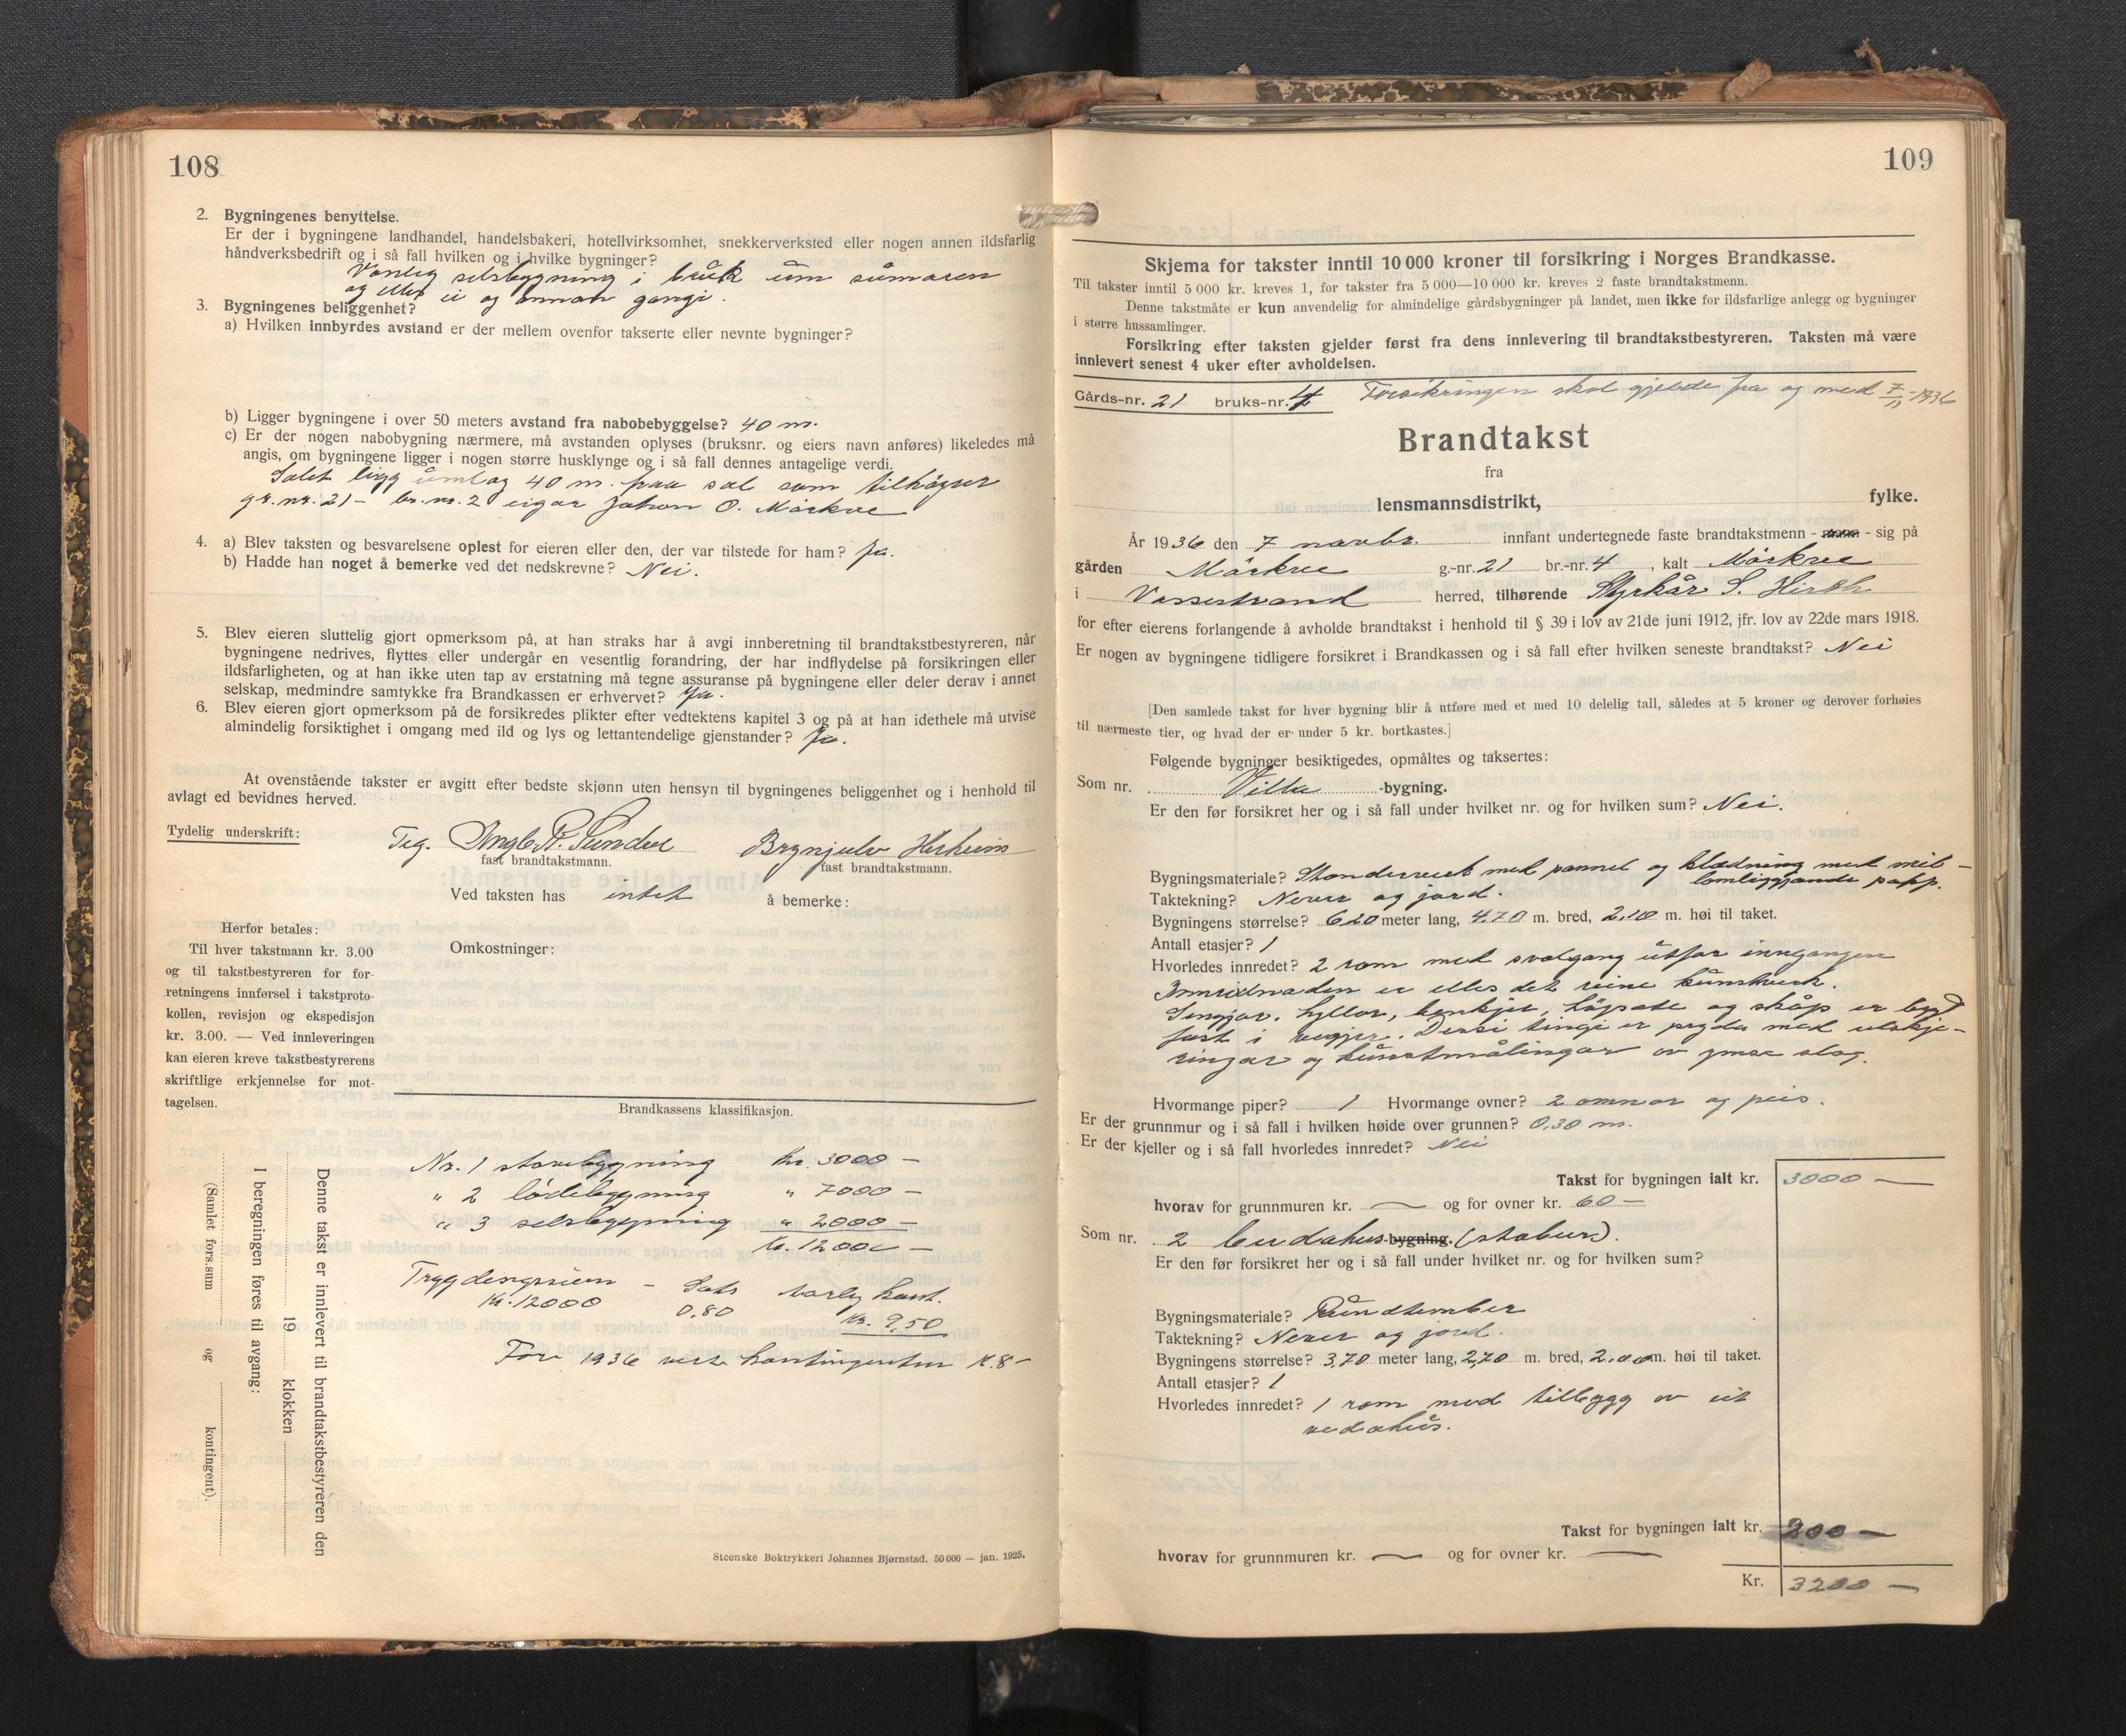 108
2. Bygningenes benyttelse.
Er der i bygningene landhandel, handelsbakeri, hotellvirksomhet, snekkerverksted eller nogen annen ildsfarlig
håndverksbedrift og i så fall hvilken og i hvilke bygninger?
Vanleg selsbygning i bruk um sumaren
og elles ei og onnor gongi.
3. Bygningenes beliggenhet?
a) Hvilken innbyrdes avstand er der mellem ovenfor takserte eller nevnte bygninger?
b) Ligger bygningene i over 50 meters avstand fra nabobebyggelse? 40 m.
c) Er der nogen nabobygning nærmere, må avstanden oplyses (bruksnr. og eiers navn anføres) likeledes må
angis, om bygningene ligger i nogen større husklynge og i så fall dennes antagelige verdi.
Selet ligg umlag 40 m. fraa sel som tilhøyrer
gr. nr. 21 - br. nr. 2 eigar Johan O. Mørkve
4. a) Blev taksten og besvarelsene oplest for eieren eller den, der var tilstede for ham? Ja.
b) Hadde han noget å bemerke ved det nedskrevne? Nei.
5. Blev eieren sluttelig gjort opmerksom på, at han straks har å avgi innberetning til brandtakstbestyreren, når
bygningene nedrives, flyttes eller undergår en vesentlig forandring, der har indflydelse på forsikringen eller
ildsfarligheten, og at han ikke uten tap av erstatning må tegne assuranse på bygningene eller deler derav i annet
selskap, medmindre samtykke fra Brandkassen er erhvervet? Ja.
6. Blev eieren gjort opmerksom på de forsikredes plikter efter vedtektens kapitel 3 og på at han idethele må utvise
almindelig forsiktighet i omgang med ild og lys og lettantendelige gjenstander? Ja.
At ovenstående takster er avgitt efter bedste skjønn uten hensyn til bygningenes beliggenhet og i henhold til
avlagt ed bevidnes herved.
Tydelig underskrift: Teg. R. Sundve Brynjulv Herheim
fast brandtakstmann. fast brandtakstmann.
Ved taksten has intet å bemerke:
Herfor betales:
Til hver takstmann kr. 3.00
og til takstbestyreren for for-
retningens innførsel i takstproto-
kollen, revisjon og ekspedisjon
kr. 3.00. — Ved innleveringen
kan eieren kreve takstbestyrerens
skriftlige erkjennelse for mot-
tagelsen.
Omkostninger:
Brandkassens klassifikasjon.
Nr. 1 stovebygning Kr. 3000 -
" 2 lødebygning " 7000 -
" 3 selsbygning " 2000 -
Kr. 12000 -
Trygdesum - Sats aarleg kont.
Kr. 12000 0.80 Kr. 9.50
For 1936 vert kontingenten K. 8 -
Denne takst er innlevert til brandtakstbestyreren den
19 klokken
I beregningen føres til avgang:
(Samlet fors.sum og kontingent).
Steenske Boktrykkeri Johannes Bjørnstad. 50 000 — jan. 1925.
109
Skjema for takster inntil 10 000 kroner til forsikring i Norges Brandkasse.
Til takster inntil 5 000 kr. kreves 1, for takster fra 5 000—10 000 kr. kreves 2 faste brandtakstmenn.
Denne takstmåte er kun anvendelig for almindelige gårdsbygninger på landet, men ikke for ildsfarlige anlegg og bygninger
i større hussamlinger.
Forsikring efter taksten gjelder først fra dens innlevering til brandtakstbestyreren. Taksten må være
innlevert senest 4 uker efter avholdelsen.
Gårds-nr. 21 bruks-nr. 4 Forsikringen skal gjelde fra og med 7/11-1936
Brandtakst
fra
lensmannsdistrikt, fylke.
År 1936 den 7 novbr. innfant undertegnede faste brandtakstmenn - - sig på
gården Mørkve g.-nr. 21 br.-nr. 4, kalt Mørkve
i Vossestrand herred, tilhørende Styrkår S. Hirth
for efter eierens forlangende å avholde brandtakst i henhold til § 39 i lov av 21de juni 1912, jfr. lov av 22de mars 1918.
Er nogen av bygningene tidligere forsikret i Brandkassen og i så fall efter hvilken seneste brandtakst? Nei
[Den samlede takst for hver bygning blir å utføre med et med 10 delelig tall, således at 5 kroner og derover forhøies
til nærmeste tier, og hvad der er under 5 kr. bortkastes.]
Følgende bygninger besiktigedes, opmåltes og taksertes:
Som nr. Villa -bygning.
Er den før forsikret her og i så fall under hvilket nr. og for hvilken sum? Nei.
Bygningsmateriale? Standerverk med pannel og klædning med mil-
lomliggjande papp.
Taktekning? Never og jord.
Bygningens størrelse? 6.20 meter lang, 4.70 m. bred, 2.10 m. høi til taket.
Antall etasjer? 1
Hvorledes innredet? 2 rom med svalgang utfor inngangen
Innreidnaden er elles det reine kunstverk.
Sengjar, hyllor, benkjer, høgsete og skåp er bygd
fast i vegjer. Dessi tingi er prydde med utskje-
ringar og kunstmålingar av ymse slag.
Hvormange piper? 1 Hvormange ovner? 2 omnar og peis.
Er der grunnmur og i så fall i hvilken høide over grunnen? 0,30 m.
Er der kjeller og i så fall hvorledes innredet? Nei
Takst for bygningen ialt kr. 3000 —
hvorav for grunnmuren kr. — og for ovner kr. 60 —
Som nr. 2 budahus bygning. (stabur).
Er den før forsikret her og i så fall under hvilket nr. og for hvilken sum?
Bygningsmateriale? Rundtember
Taktekning? Never og jord.
Bygningens størrelse? 3,70 meter lang, 2,70 m. bred, 2.00 m. høi til taket.
Antall etasjer? 1
Hvorledes innredet? 1 rom med tilbygg av eit
vedahus.
Takst for bygningen ialt kr. 200 —
hvorav for grunnmuren kr. — og for ovner kr. —
Kr. 3200 —